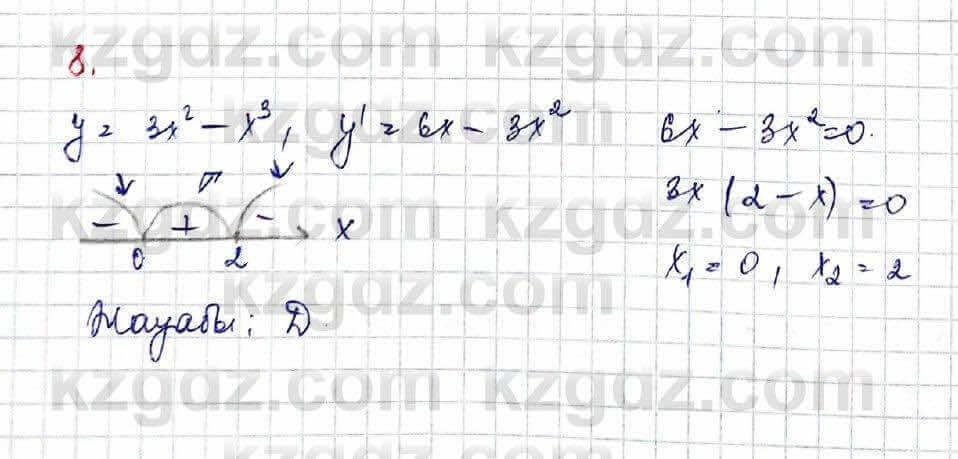 8.
y = 3x² - x³, y' = 6x - 3x²
6x - 3x² = 0.
3x (2 - x) = 0
x₁ = 0, x₂ = 2
- + - x
0 2
Жауабы: D.
kzgdz.com kzgdz.com
kzgdz.com
kzgdz.com kzgdz.com
kzgdz.com
kzgdz.com kzgdz.com
kzgdz.com